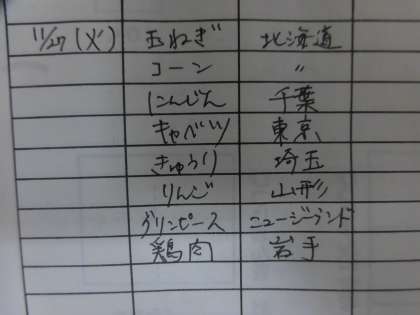 11/27(火) 玉ねぎ 北海道
コーン 〃
にんじん 千葉
キャベツ 東京
きゅうり 埼玉
りんご 山形
グリンピース ニュージランド
鶏肉 岩手